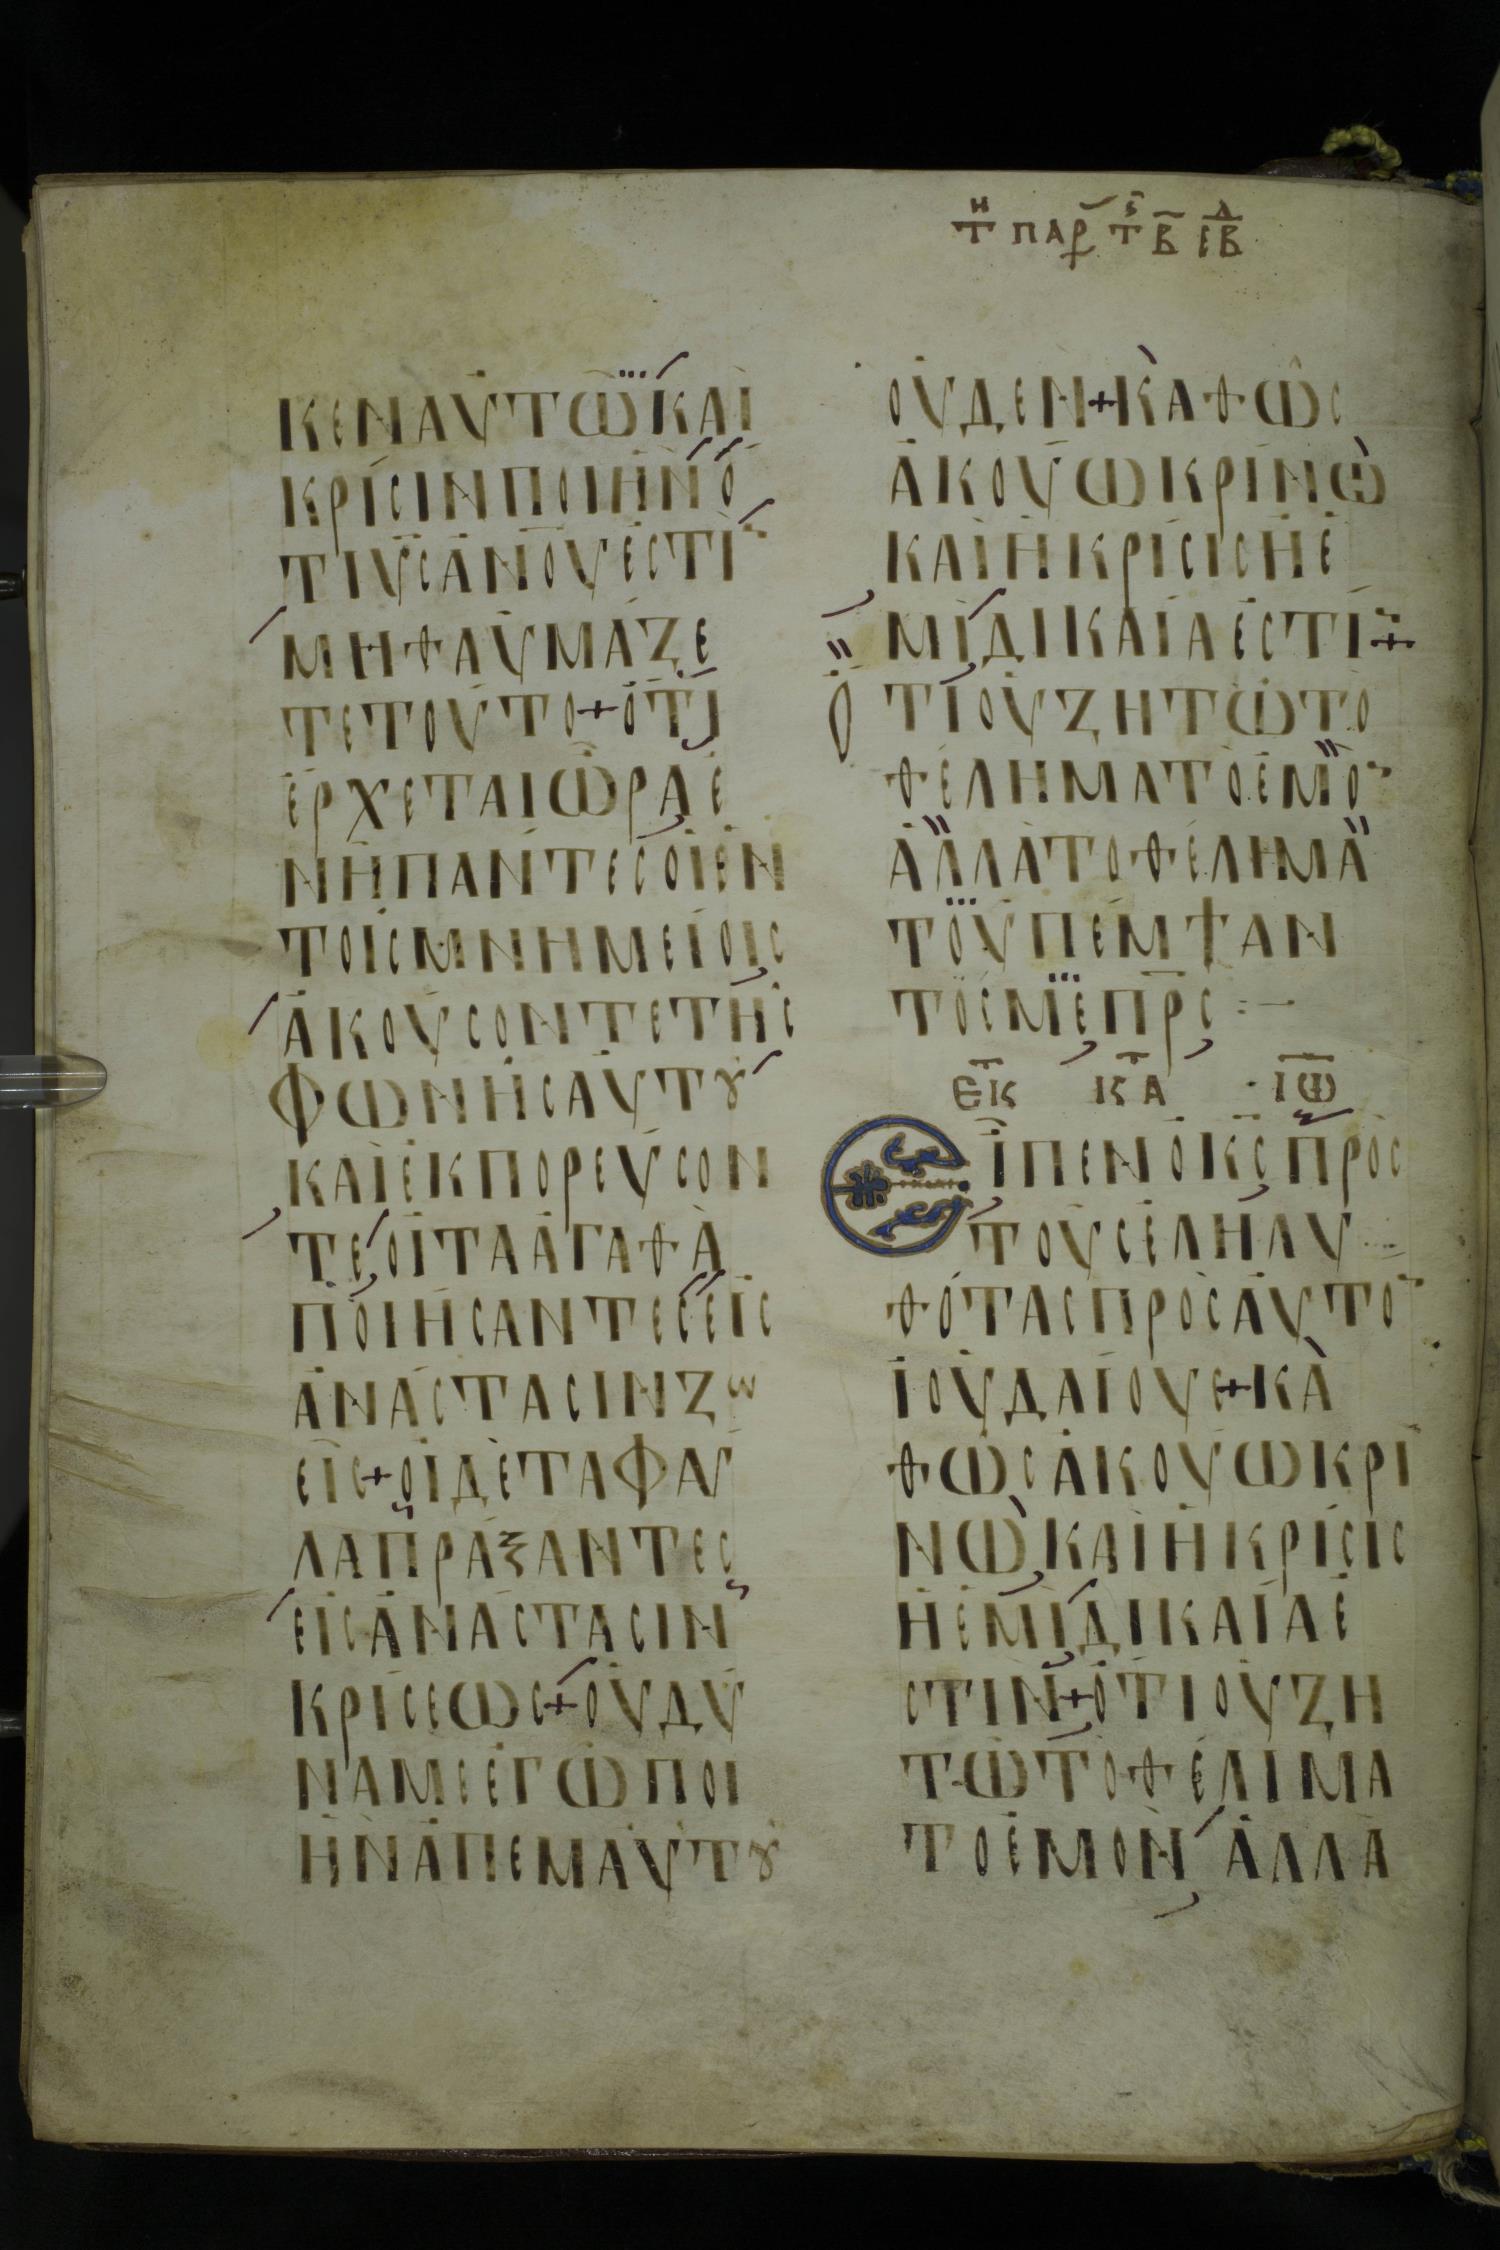 ΤΗ ΠΑΡ ΤΣ Β ΙΒ Δ
ΚΕΝΑΥΤΩΚΑΙ
ΚΡΙСΙΝΠΟΙΗΝΟ
ΤΙΥ̅С̅ΑΝΟ̅Υ̅ΕСΤΙ̅
ΜΗΘΑΥΜΑΖΕ
ΤΕΤΟΥΤΟ+ΟΤΙ
ΕΡΧΕΤΑΙΩΡΑΕ
ΝΗΠΑΝΤΕСΟΙΕΝ
ΤΟΙСΜΝΗΜΕΙΟΙС
ΑΚΟΥСΟΝΤΕΤΗС
ΦΩΝΗСΑΥΤȢ
ΚΑΙΕΚΠΟΡΕΥСΟΝ
ΤΕΟΙΤΑΑΓΑΘΑ
ΠΟΙΗСΑΝΤΕСΕΙС
ΑΝΑСΤΑСΙΝΖΩ
ΕΙС+ΟΙΔΕΤΑΦΑΥ
ΛΑΠΡΑΞΑΝΤΕС
ΕΙСΑΝΑСΤΑСΙΝ
ΚΡΙСΕΩС+ΟΥΔΥ
ΝΑΜΕΕΓΩΠΟΙ
ΗΝΑΠΕΜΑΥΤȢ
ΟΥΔΕΝ+ΚΑΘΩС
ΑΚΟΥΩΚΡΙΝΩ
ΚΑΙΗΚΡΙСΙСΗΕ
ΜΙΔΙΚΑΙΑΕСΤΙ̅+
ΟΤΙΟΥΖΗΤΩΤΟ
ΘΕΛΗΜΑΤΟΕΜΟ̅
ΑΛΛΑΤΟΘΕΛΗΜΑ
ΤΟΥΠΕΜΨΑΝ
ΤΟСΜΕΠ̅Ρ̅С̅:—
ΕΚ ΚΑ ΙΩ
ΕΙΠΕΝΟΚ̅С̅ΠΡΟС
ΤΟΥСΕΛΗΛΥ
ΘΟΤΑСΠΡΟСΑΥΤΟ̅
ΙΟΥΔΑΙΟΥС+ΚΑ
ΘΩСΑΚΟΥΩΚΡΙ
ΝΩΚΑΙΗΚΡΙСΙС
ΗΕΜΙΔΙΚΑΙΑΕ
СΤΙΝ+ΟΤΙΟΥΖΗ
ΤΩΤΟΘΕΛΙΜΑ
ΤΟΕΜΟΝ ΑΛΛΑ